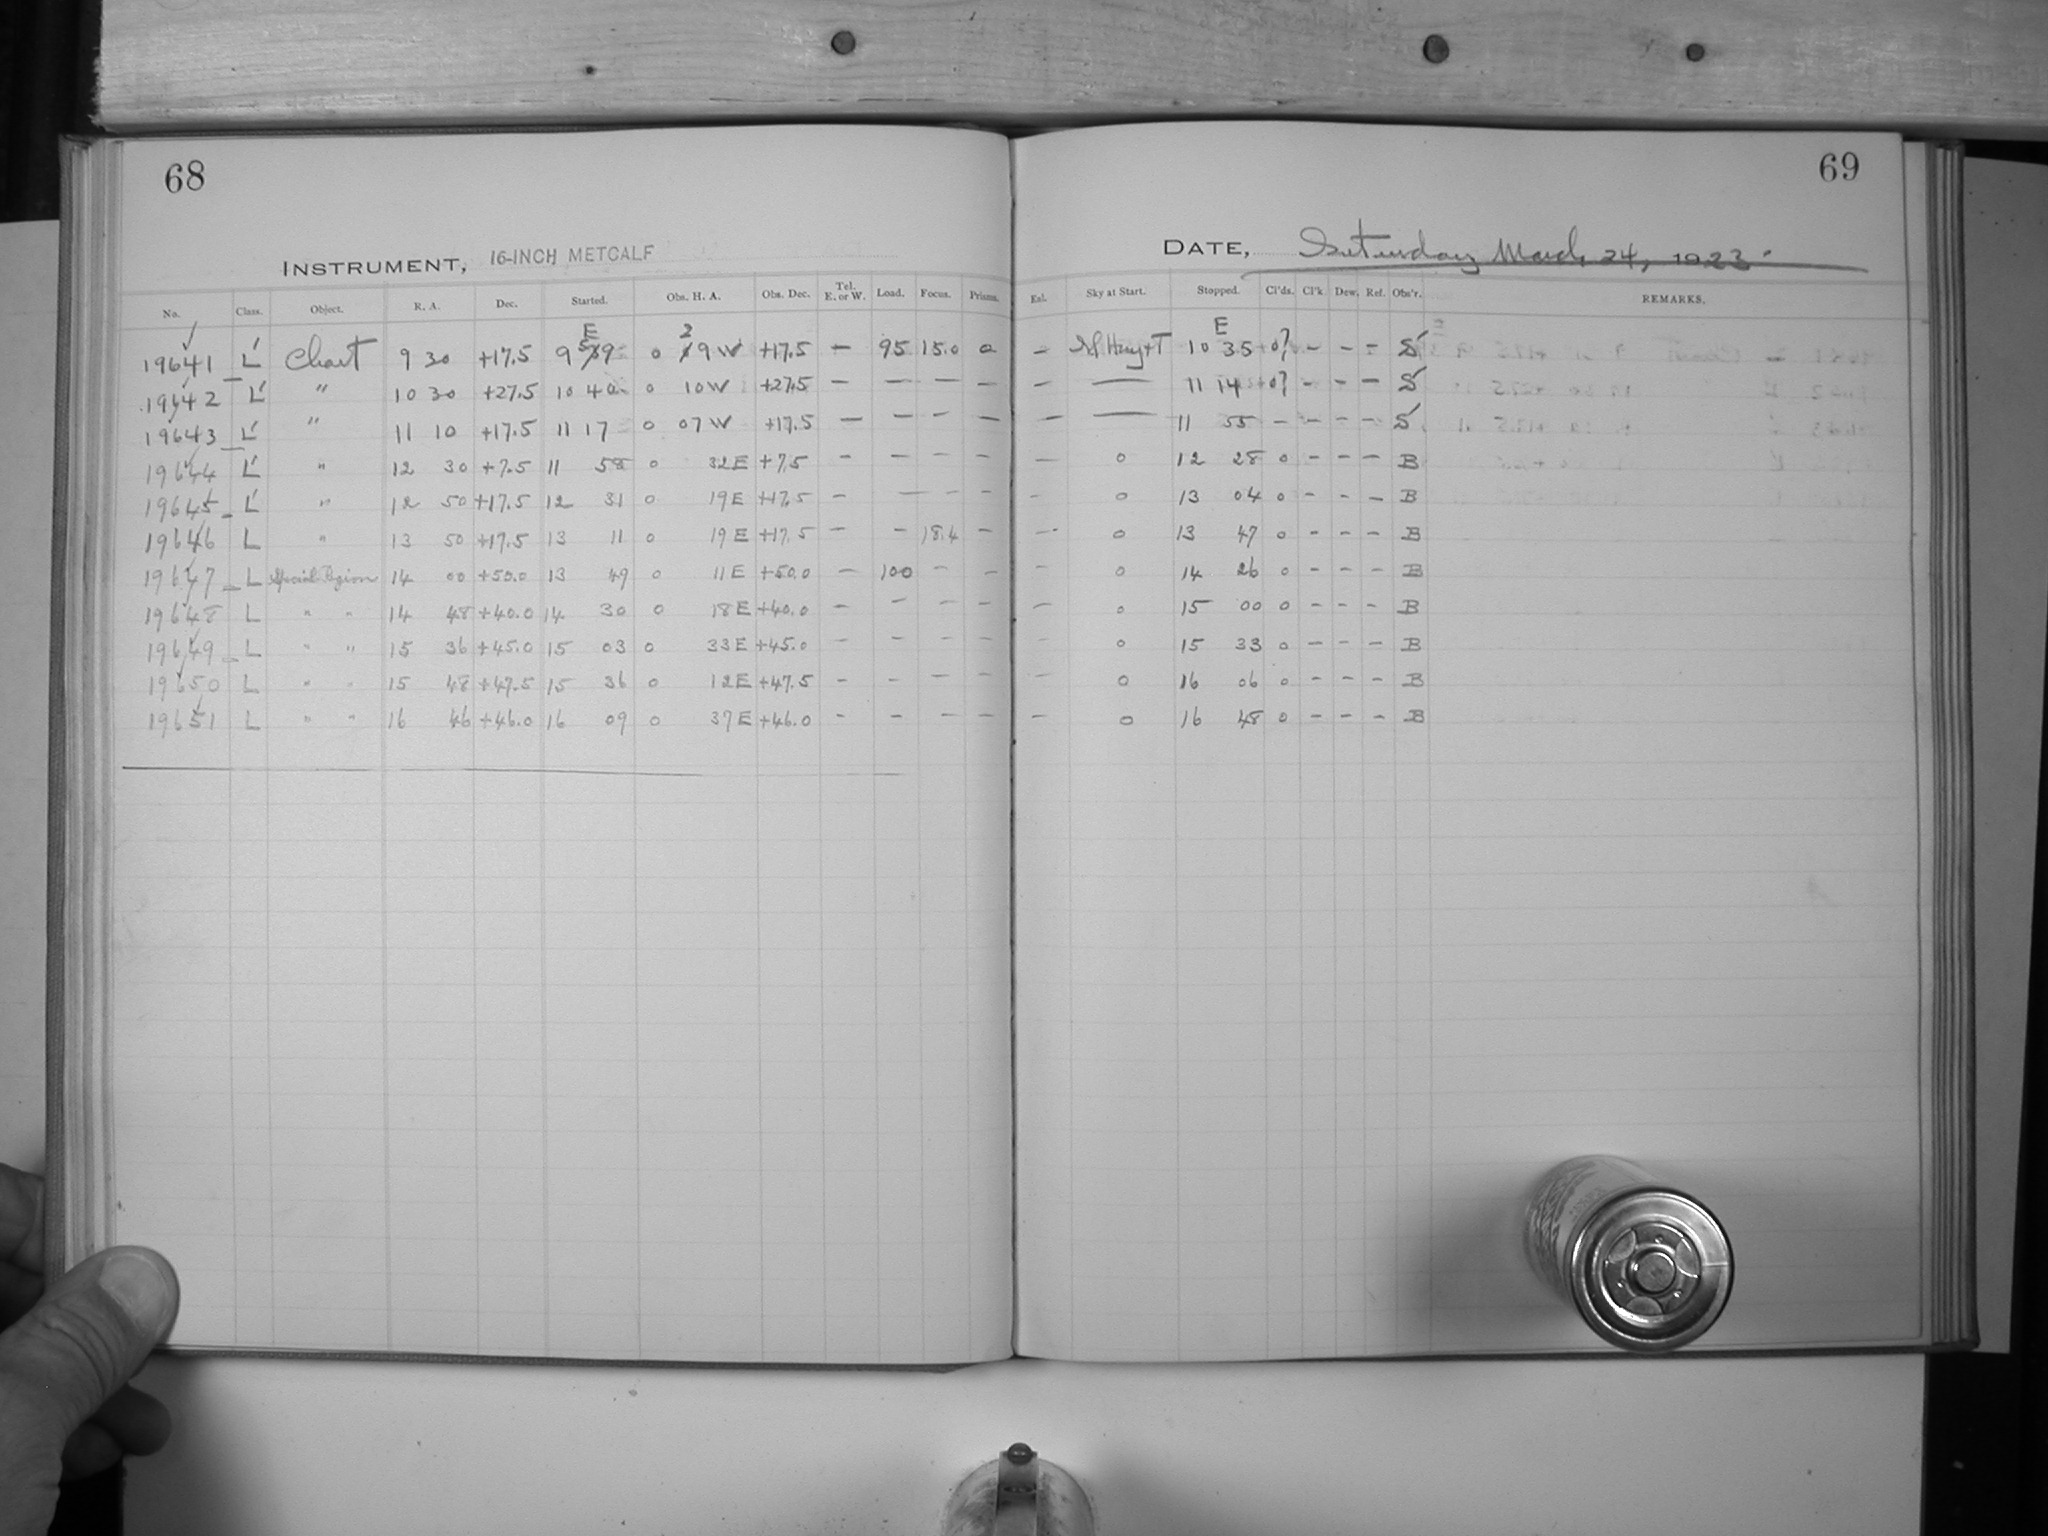 68
69
INSTRUMENT, 16-INCH METCALF
DATE, Saturday March 24, 1923.
No. Class. Object. R. A. Dec. Started. Obs. H. A. Obs. Dec. Tel. E. or W. Load. Focus. Prisms. Exl. Sky at Start. Stopped. Cl'ds. Cl'k Dew. Ref. Obs'r. REMARKS.
E 2 E
19641 L Chart 9 30 +17.5 9 59 0 19 W +17.5 — 95 15.0 0 — 10 35 0? — — — S
19642 L " 10 30 +27.5 10 40 0 10 W +27.5 — — — — — — 11 14 0? — — — S
19643 L " 11 10 +17.5 11 17 0 07 W +17.5 — — — — — — 11 55 — — — — S
19644 L " 12 30 +7.5 11 58 0 32 E +7.5 — — — — — 0 12 28 0 — — — B
19645 L " 12 50 +17.5 12 31 0 19 E +17.5 — — — — — 0 13 04 0 — — — B
19646 L " 13 50 +17.5 13 11 0 19 E +17.5 — — 18.4 — — 0 13 47 0 — — — B
19647 L Special Region 14 00 +50.0 13 49 0 11 E +50.0 — 100 — — — 0 14 26 0 — — — B
19648 L " " 14 48 +40.0 14 30 0 18 E +40.0 — — — — — 0 15 00 0 — — — B
19649 L " " 15 36 +45.0 15 03 0 33 E +45.0 — — — — — 0 15 33 0 — — — B
19650 L " " 15 48 +47.5 15 36 0 12 E +47.5 — — — — — 0 16 06 0 — — — B
19651 L " " 16 46 +46.0 16 09 0 37 E +46.0 — — — — — 0 16 48 0 — — — B